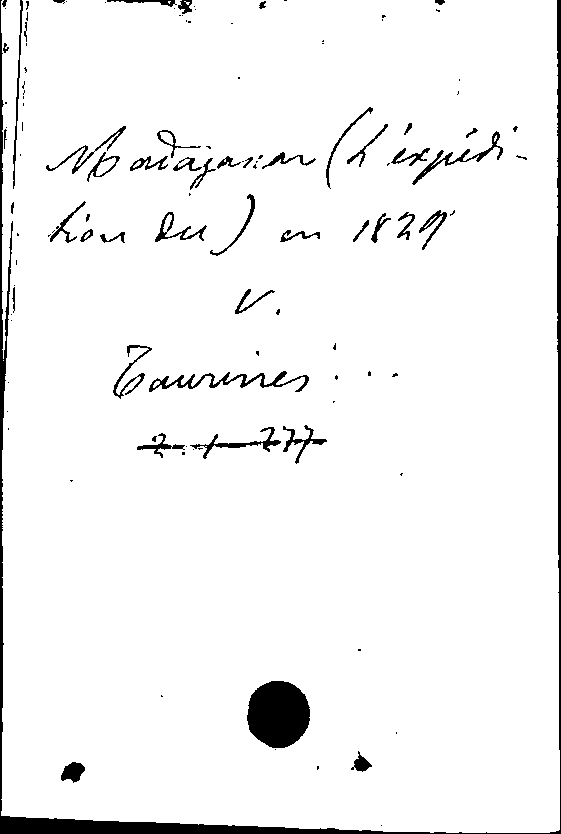 Madagascar (L'expédi-
tion du) en 1829
V.
Taurines ...
2. 1 277